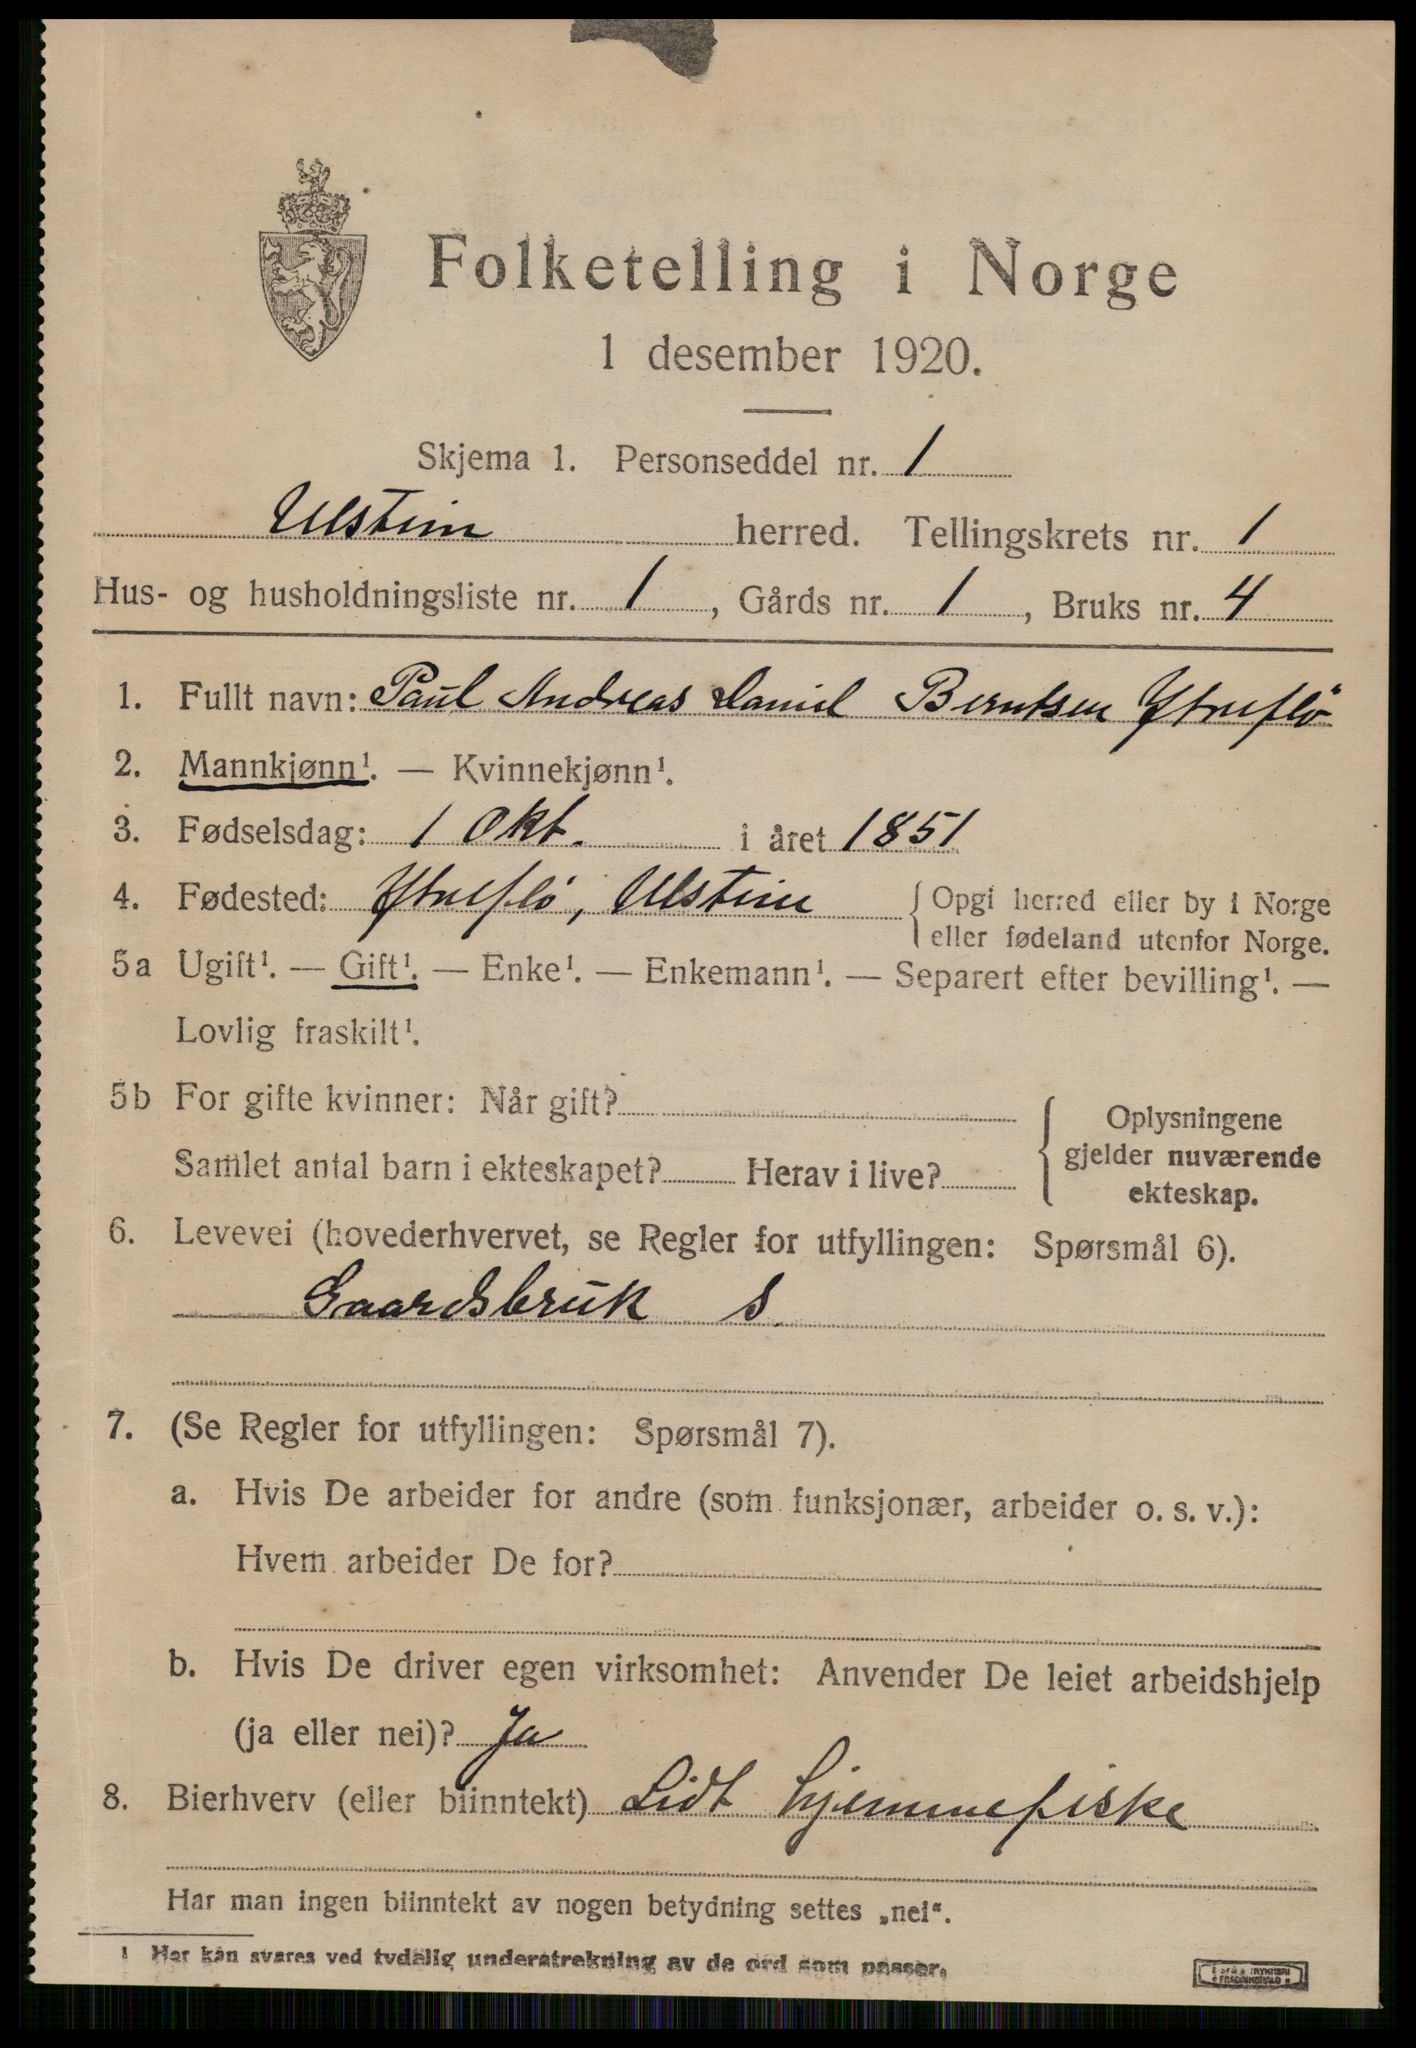 Folketelling i Norge
1 desember 1920.
Skjema 1. Personseddel nr. 1
Ulstein herred. Tellingskrets nr. 1
Hus- og husholdningsliste nr. 1, Gårds nr. 1, Bruks nr. 4
1. Fullt navn: Paul Andreas Daniel Berntsen Ytreflö
2. Mannkjønn¹. — Kvinnekjønn¹.
3. Fødselsdag: 1 Okt. i året 1851
4. Fødested: Ytreflö, Ulstein { Opgi herred eller by i Norge
eller fødeland utenfor Norge.
5a Ugift¹. — Gift¹. — Enke¹. — Enkemann¹. — Separert efter bevilling¹. —
Lovlig fraskilt¹.
5b For gifte kvinner: Når gift?
Samlet antal barn i ekteskapet? Herav i live?
{ Oplysningene
gjelder nuværende
ekteskap.
6. Levevei (hovederhvervet, se Regler for utfyllingen: Spørsmål 6).
Gaardsbruk S
7. (Se Regler for utfyllingen: Spørsmål 7).
a. Hvis De arbeider for andre (som funksjonær, arbeider o. s. v.):
Hvem arbeider De for?
b. Hvis De driver egen virksomhet: Anvender De leiet arbeidshjelp
(ja eller nei)? Ja
8. Bierhverv (eller biinntekt) Lidt hjemmefiske
Har man ingen biinntekt av nogen betydning settes „nei“.
1 Her kan svares ved tydelig understrekning av de ord som passer.